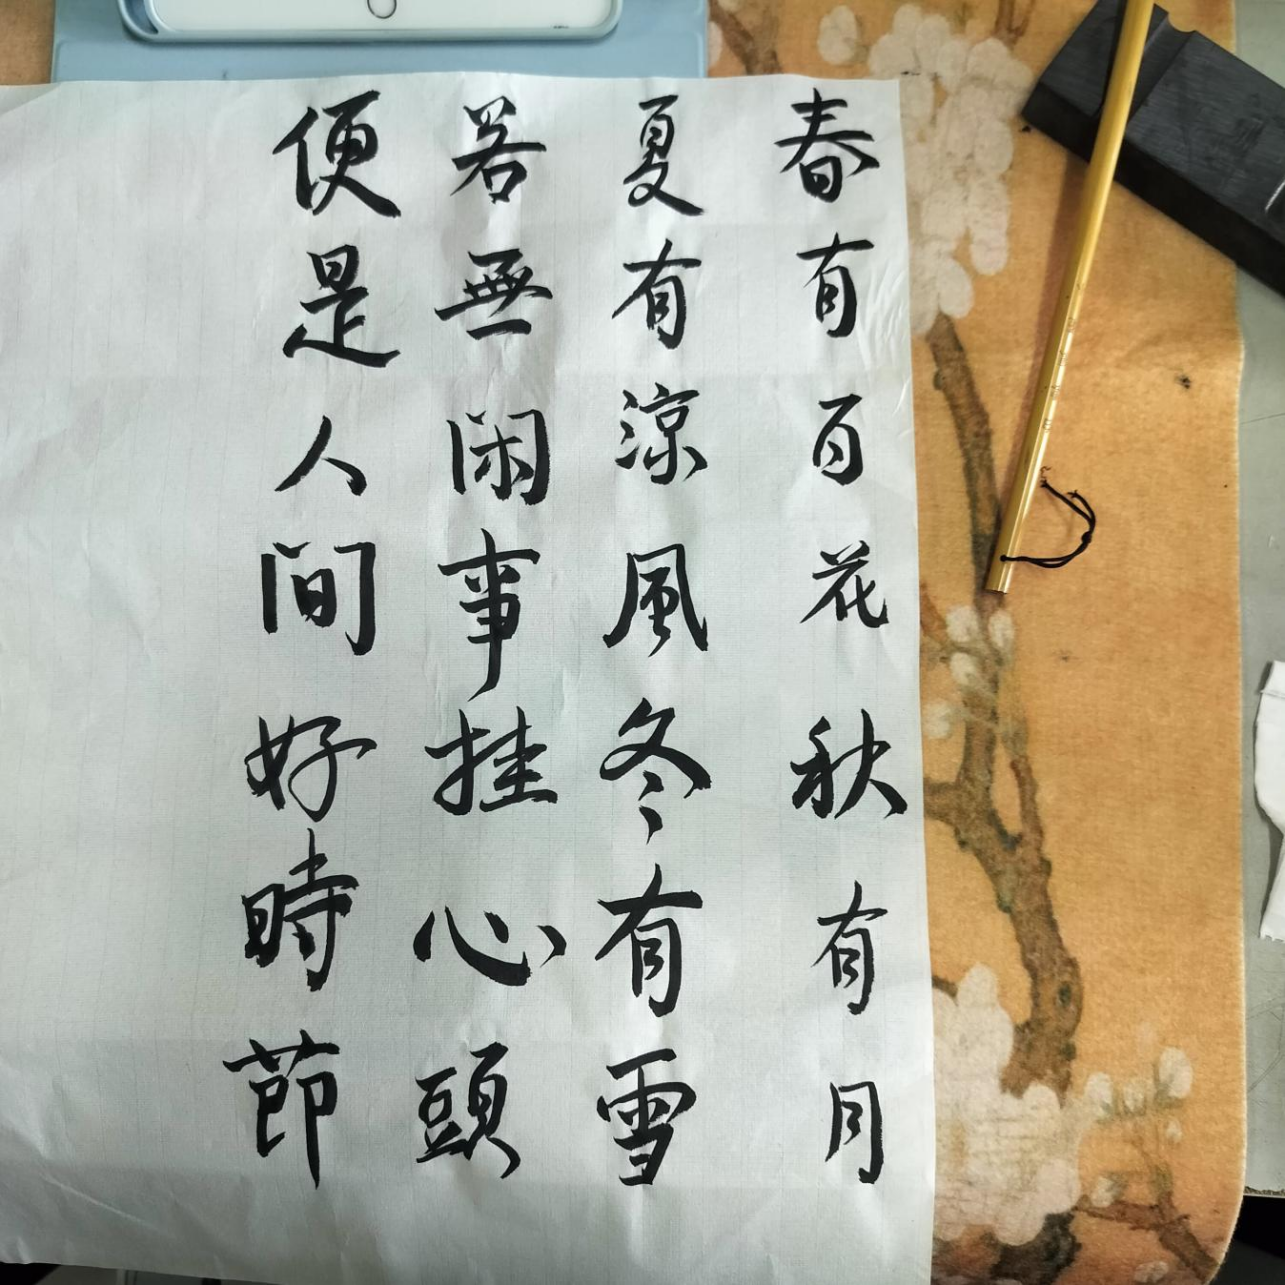 春有百花秋有月
夏有涼風冬有雪
若無闲事挂心頭
便是人间好時節